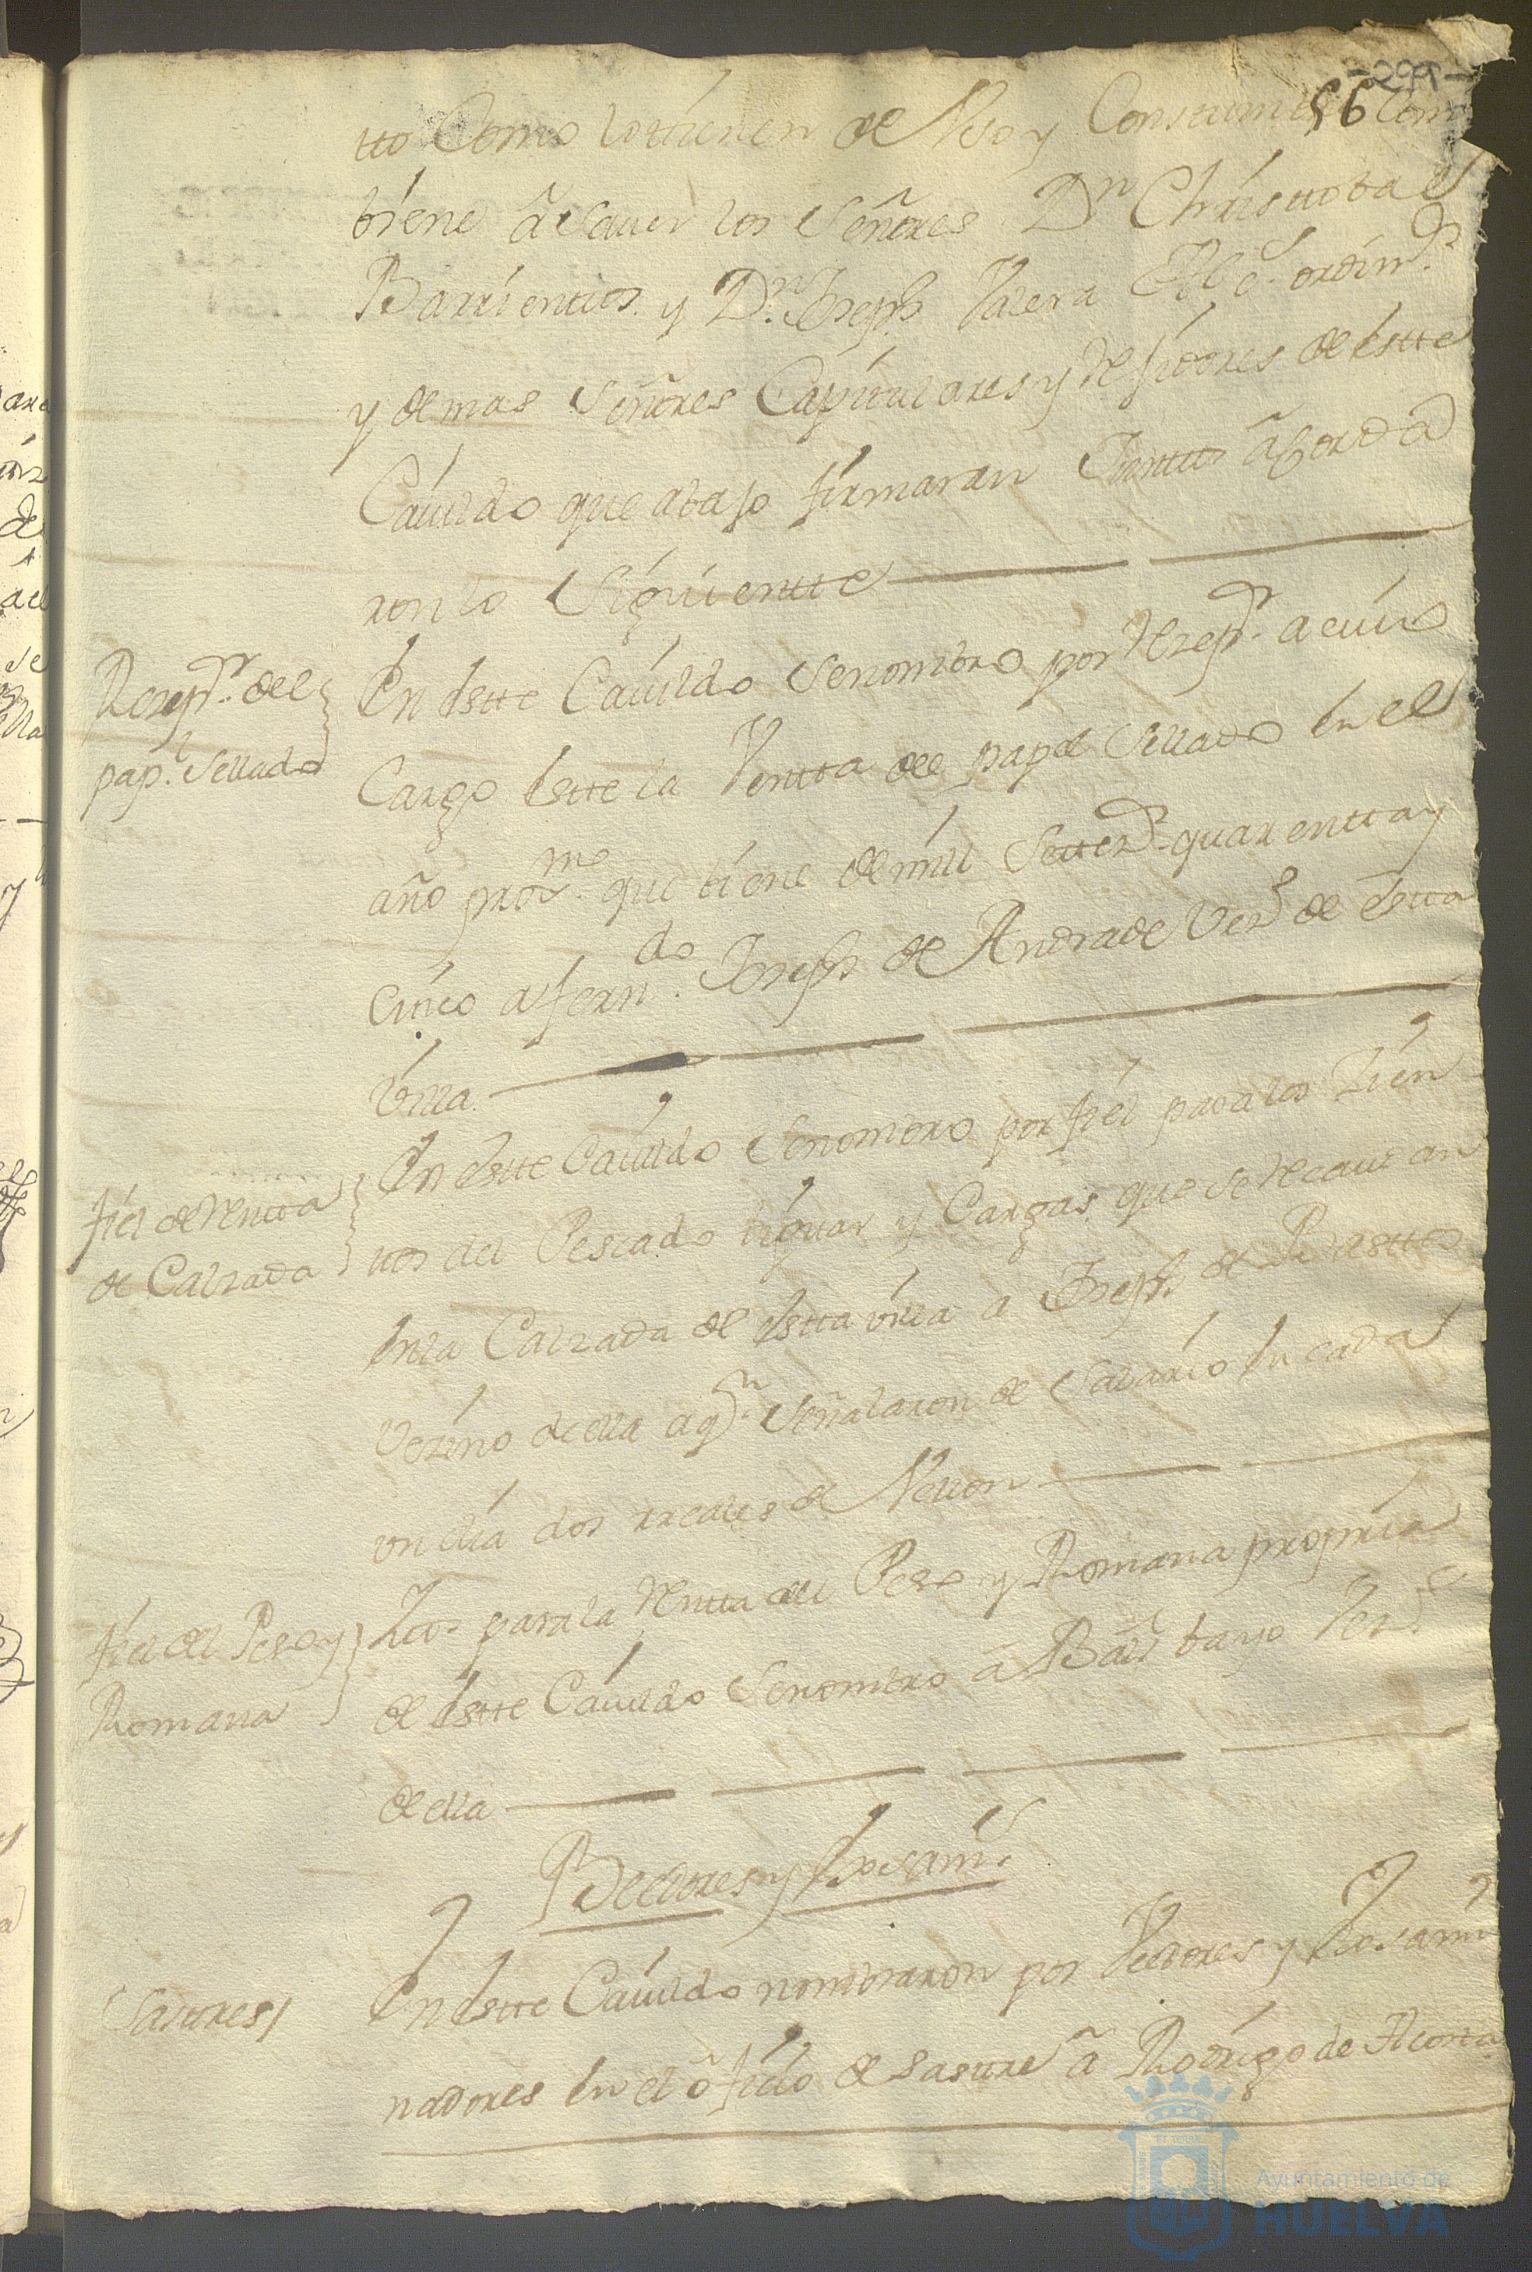 -299-
56
tto Como lo tienen de Vso y Constumbre Com
biene â Sauer los Señores Dn Christtobal
Barrientos y Dn. Joseph Valera Alcs. ordinos.
y demas Señores Capitulares y Rejidores de estte
Cauildo que abajo firmaran Juntos âCorda
ron lo Siguientte
Rezepr. del
papl. Sellado
En estte Cauildo Se nombro por Rezepr. a cuio
Cargo estte la Ventta del papel Sellado en el
año proxme. que biene de mill Settezs. quarentta y
Cinco a Ferndo. Joseph de Andrade Vezo de estta
Villa
Fiel de Rentta
de Calzada
En estte Cauildo Se nombro por fiel para los Zien
tos del Pescado higuar y Cargas que se Recaudan
en la Calzada de estta villa a Joseph de Riastter
Vezino de ella a qn. Señalaron de Salario en cada
vn dia dos rreales de Vellon
Fiel del Peso y
Romana
Ittn. para la Rentta del Peso y Romana propria
de estte Cauildo Se nombro â Bar. bayo Vezo.
de ella
Beedores y Exsams.
Sastres
En estte Cauildo nombraron por Veedores y Exsami
nadores en el ôficio de Sastre â Rodrigo de Acosta
Ayuntamiento de
HUELVA